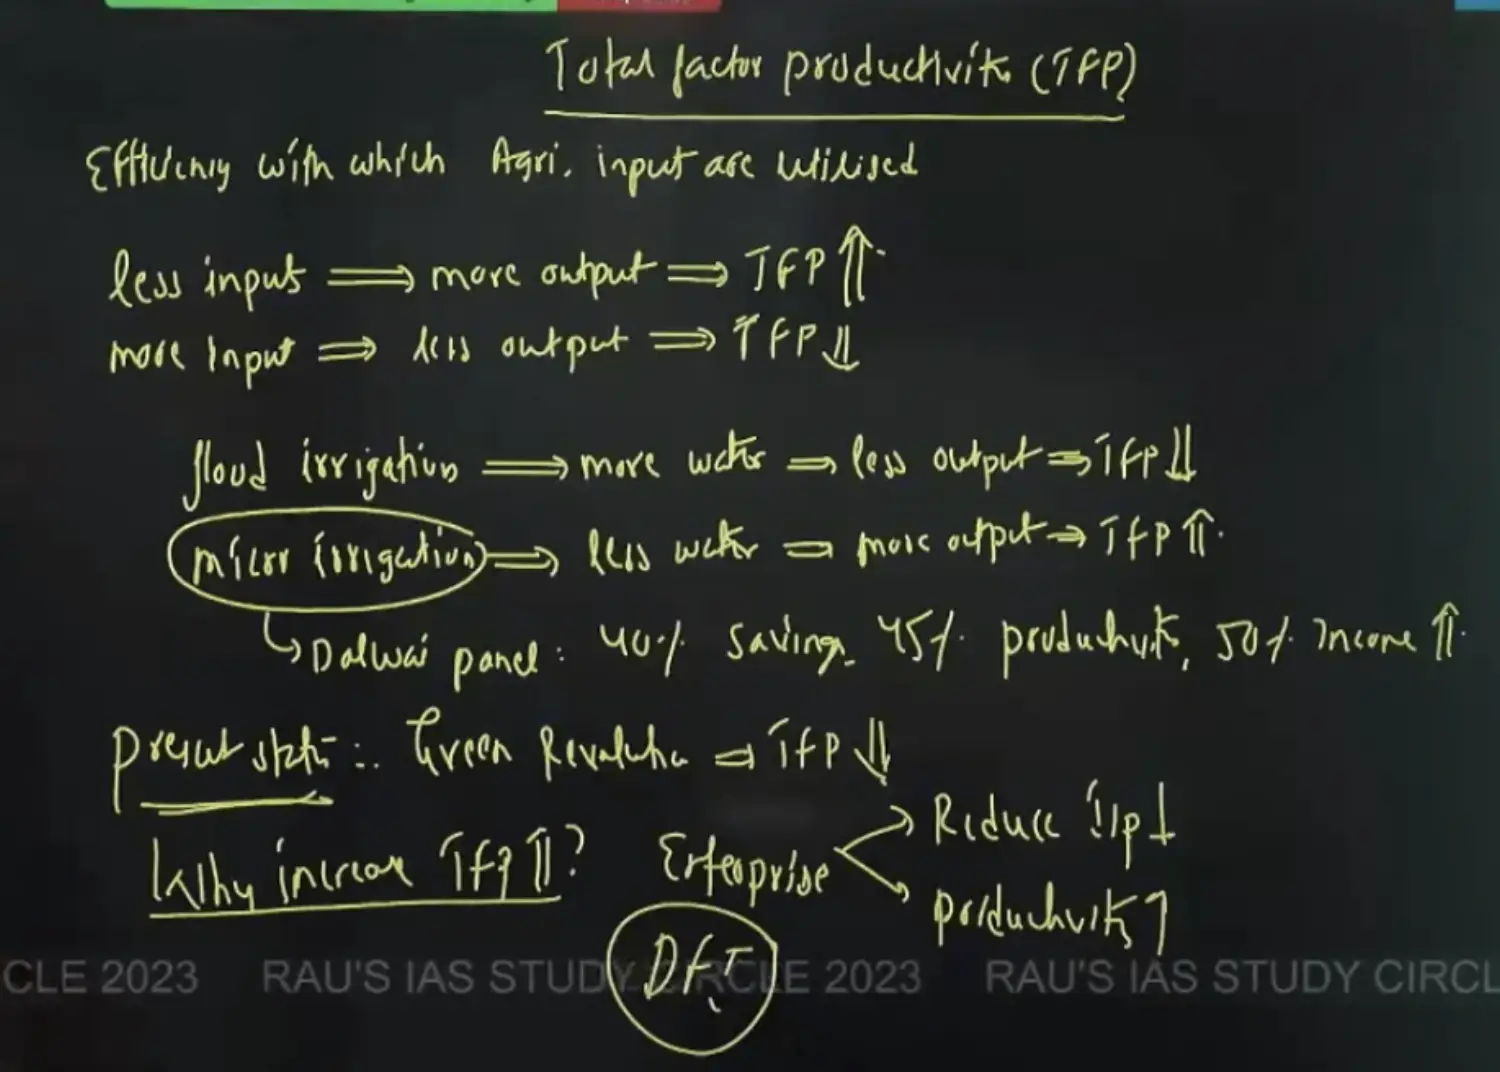 Total factor productivity (TFP)
Efficiency with which Agri. input are utilised
less input ⟹ more output ⟹ TFP ⇑
more Input ⟹ less output ⟹ TFP ⇓
flood irrigation ⟹ more water ⟹ less output ⟹ TFP ⇓
micro irrigation ⟹ less water ⟹ more output ⟹ TFP ⇑
↳ Dalwai panel: 40% saving, 45% productivity, 50% Income ⇑
Present : Green Revolution ⟹ TFP ⇓
Why increase TFP ⇑?
Enterprise
Reduce I/p ↓
productivity ↑
CLE 2023 RAU'S IAS STUDY CIRCLE 2023 RAU'S IAS STUDY CIRCL